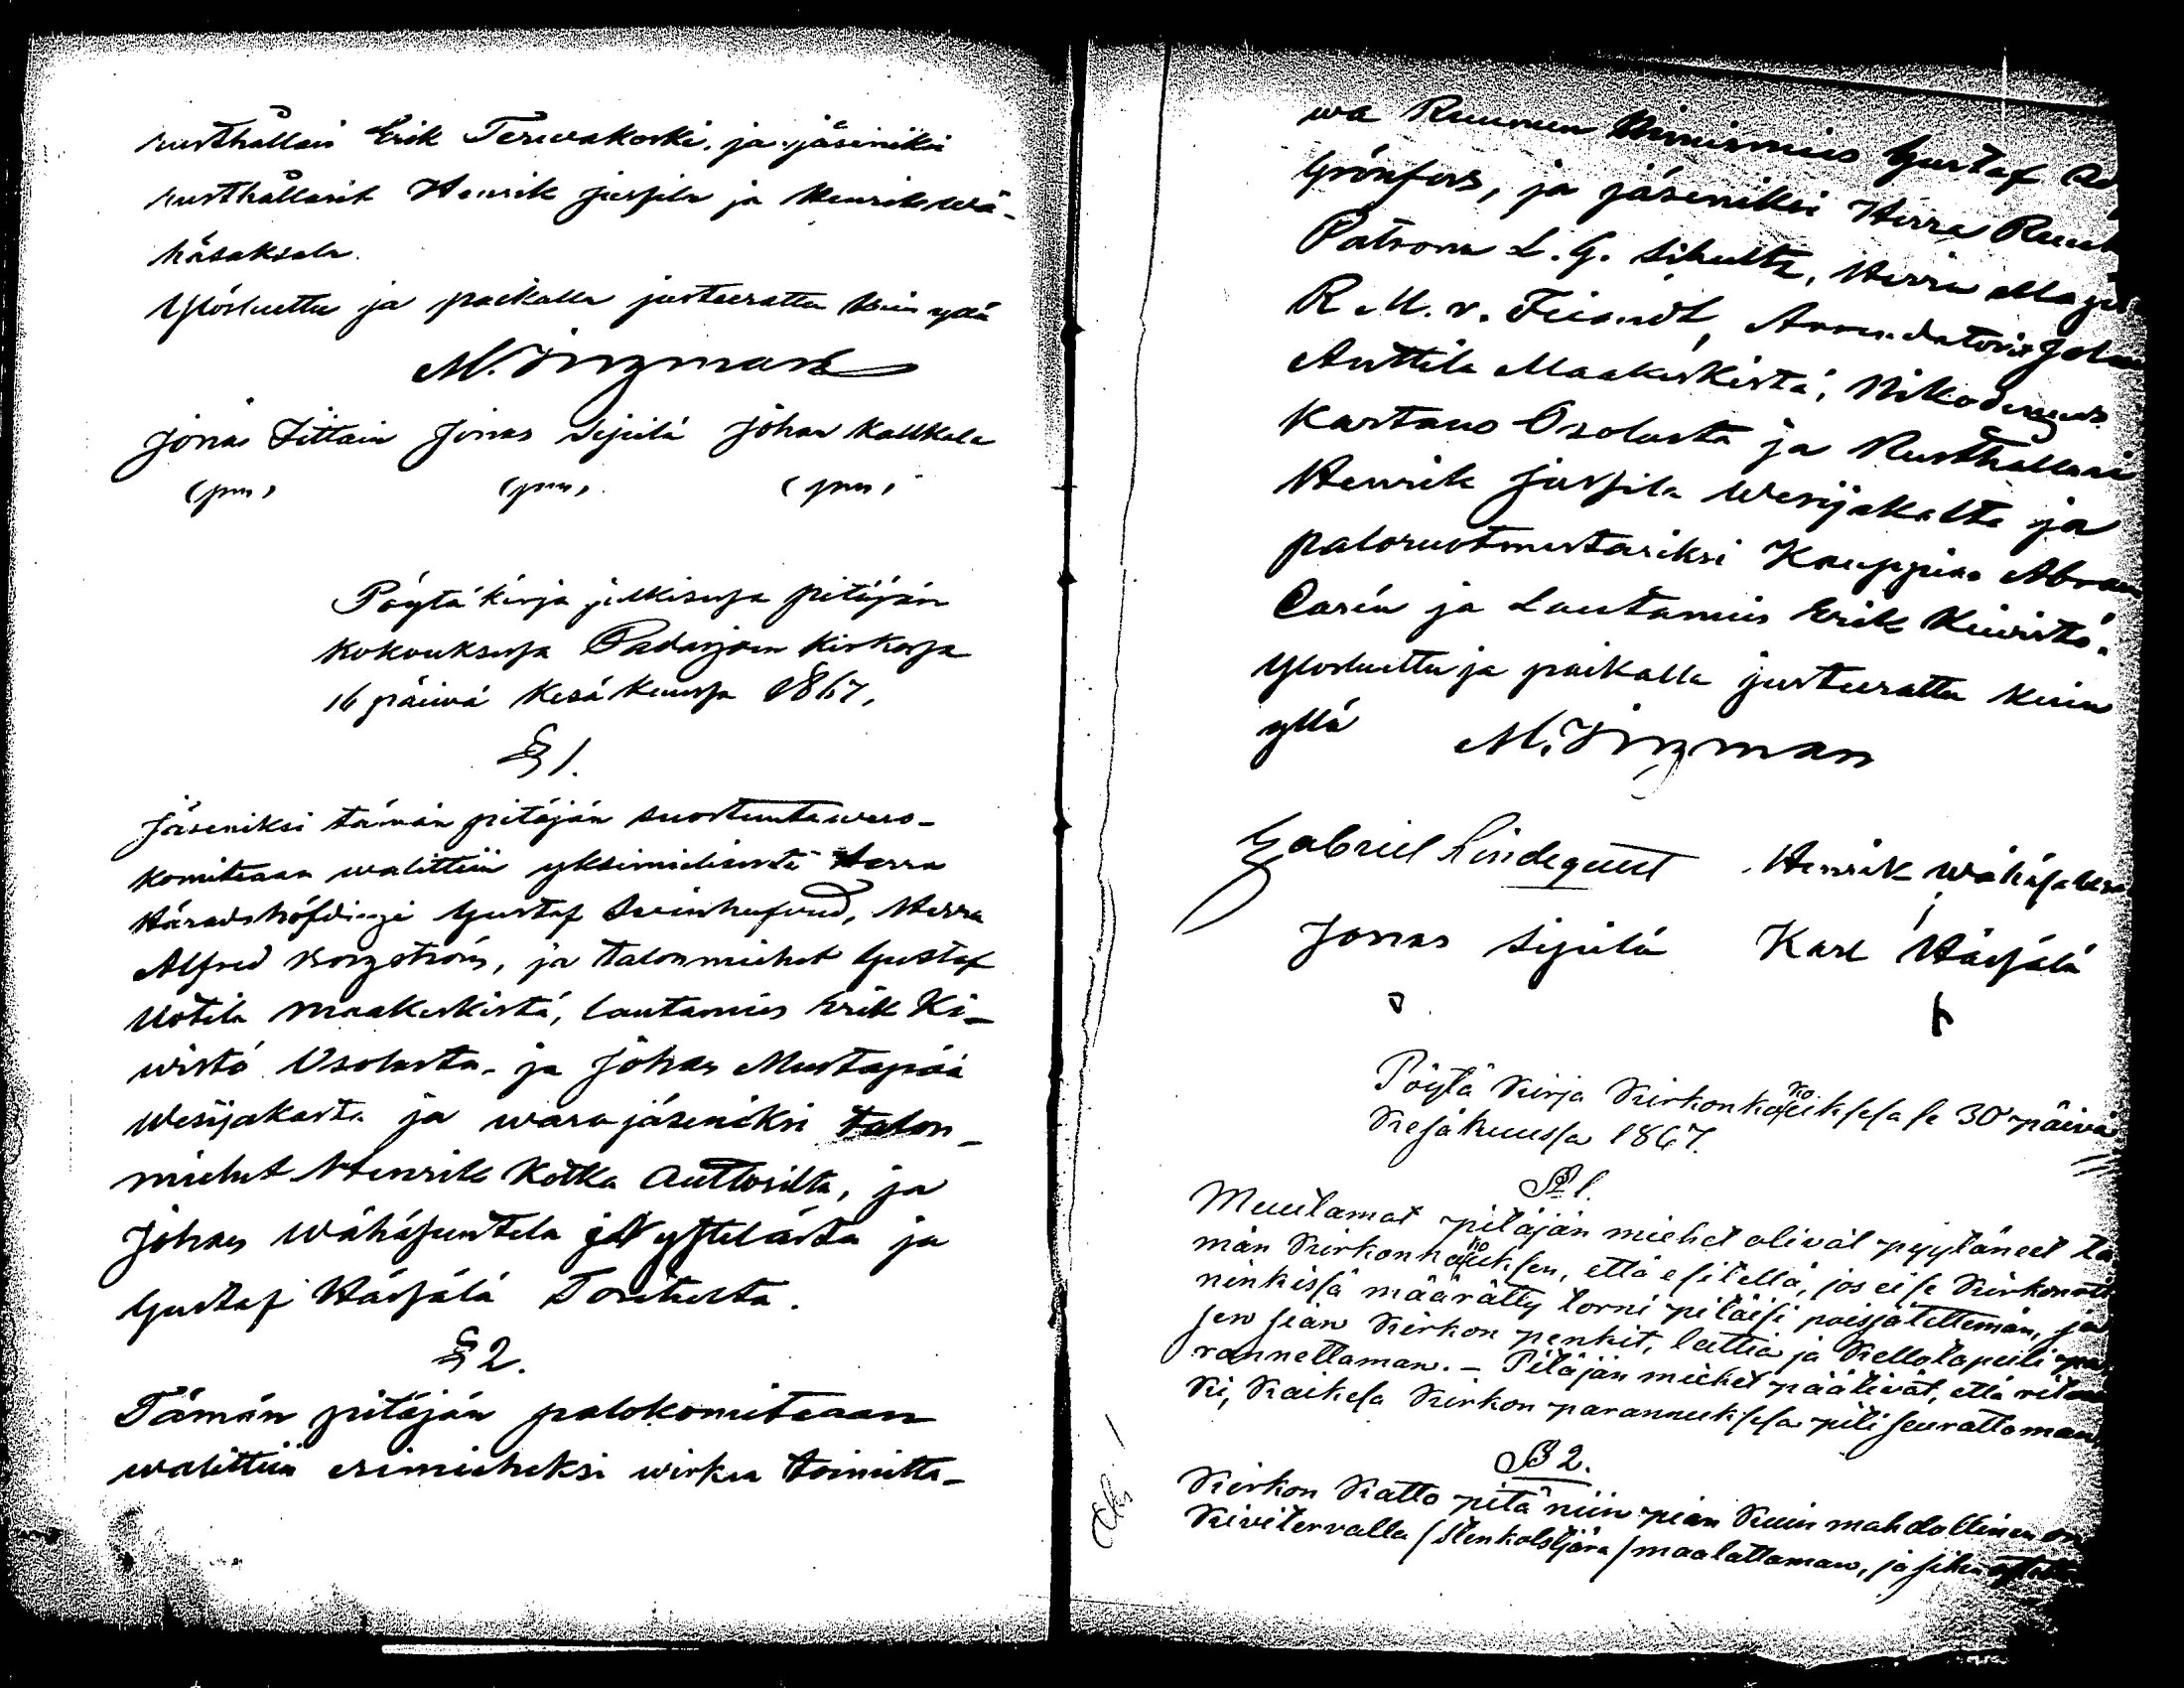 rusthållari Erik Terwakoski ja jäseniksi
rusthållarit Henrik Jussila ja Henrik Wä-
häsaksala.
Ylösluettu ja paikalla justeerattu kuin yllä
M. Ingman
Jonas Jonas Sipilä Johan Kallkala
(pm) (pm) (pm)
Pöytäkirja julkisessa pitäjän
kokouksessa Padasjoen kirkossa
16 päivä Kesäkuussa 1867.
§ 1.
Jäseniksi tämän pitäjän suostuntawero-
komiteaan walittiin yksimielisesti Herra
Häradshöfdingi Gustaf Svinhufvud, Herra
Alfred Borgström, ja talonmiehet Gustaf
Uotila Maakeskistä, lautamies Erik Ki-
wistö Osolasta ja Johan Mustapää
Wesijakasta ja warajäseniksi talon-
miehet Henrik Kotka Auttosilta, ja
Johan Wähäjuntela Nyystelästä ja
Gustaf Härjälä Toritusta.
§ 2.
Tämän pitäjän palokomiteaan
walittiin esimieheksi wirkaa toimitta-
wa Ruunun Nimismies Gustaf
Grönfors, ja jäseniksi Herra
Patronu L. G. Schultz, Herra
R. M. v. Fieandt, Arrendatori
Anttila Maakeskistä, Nikodemus
Kartano Osolasta ja Rusthållari
Henrik Jussila Wesijakalta ja
paloruotmestariksi Kauppias
Carén ja Lautamies Erik Kiwistö.
Ylösluettu ja paikalla justeerattu kuin
yllä M. Ingman
Gabriel Lindequist Henrik Wähäsaksa
Jonas Sipilä Karl Härjälä
Pöytä Kirja Kirkonkokouksesa se 30 päivä
Kesäkuussa 1867.
§ 1.
Muutamat pitäjän miehet olivat pyytäneet tä
män Kirkonkokouksen, että esitellä, jos ei se Kirkon
ninkissä määrätty torni pitäisi poisjätettemän, ja
sen sian Kirkon penkit, lattia ja Kellotapuli pa
rannettaman. – Pitäjän miehet päätivät, että
ki, Kaikesa Kirkon parannuksesa piti seurattaman
§ 2.
Kirkon Katto pitä niin pian Kuin mahdollinen on
Kivitervalla / Stenkolstjära / maalattaman, ja siihen